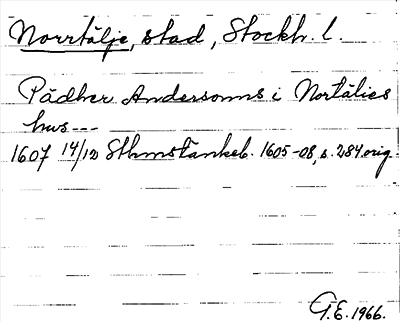 Norrtälje, stad, Stockh. l.
Pädher Andersonns i Nortälies
hws ---
1607 14/12 Sthmstänkeb. 1605-08, s. 284 orig.
G.E. 1966.